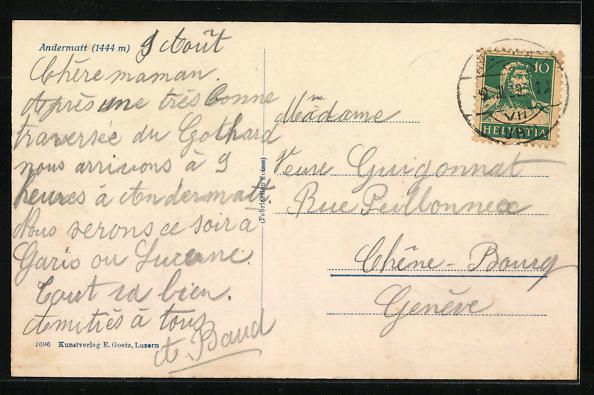 Andermatt (1444 m)
9 Août
Chère maman.
Après une très bonne
traversée du Gothard
nous arrivons à 9
heures à Andermatt.
Nous serons ce soir à
Garis ou Lucerne
Tout va bien.
Amitiés à tous
A Baud
1696 Kunstverlag E. Goetz, Luzern
Madame
Veuve Guigonnat
Rue Peillonnex
Chêne-Bourg
Genève
10
HELVETIA